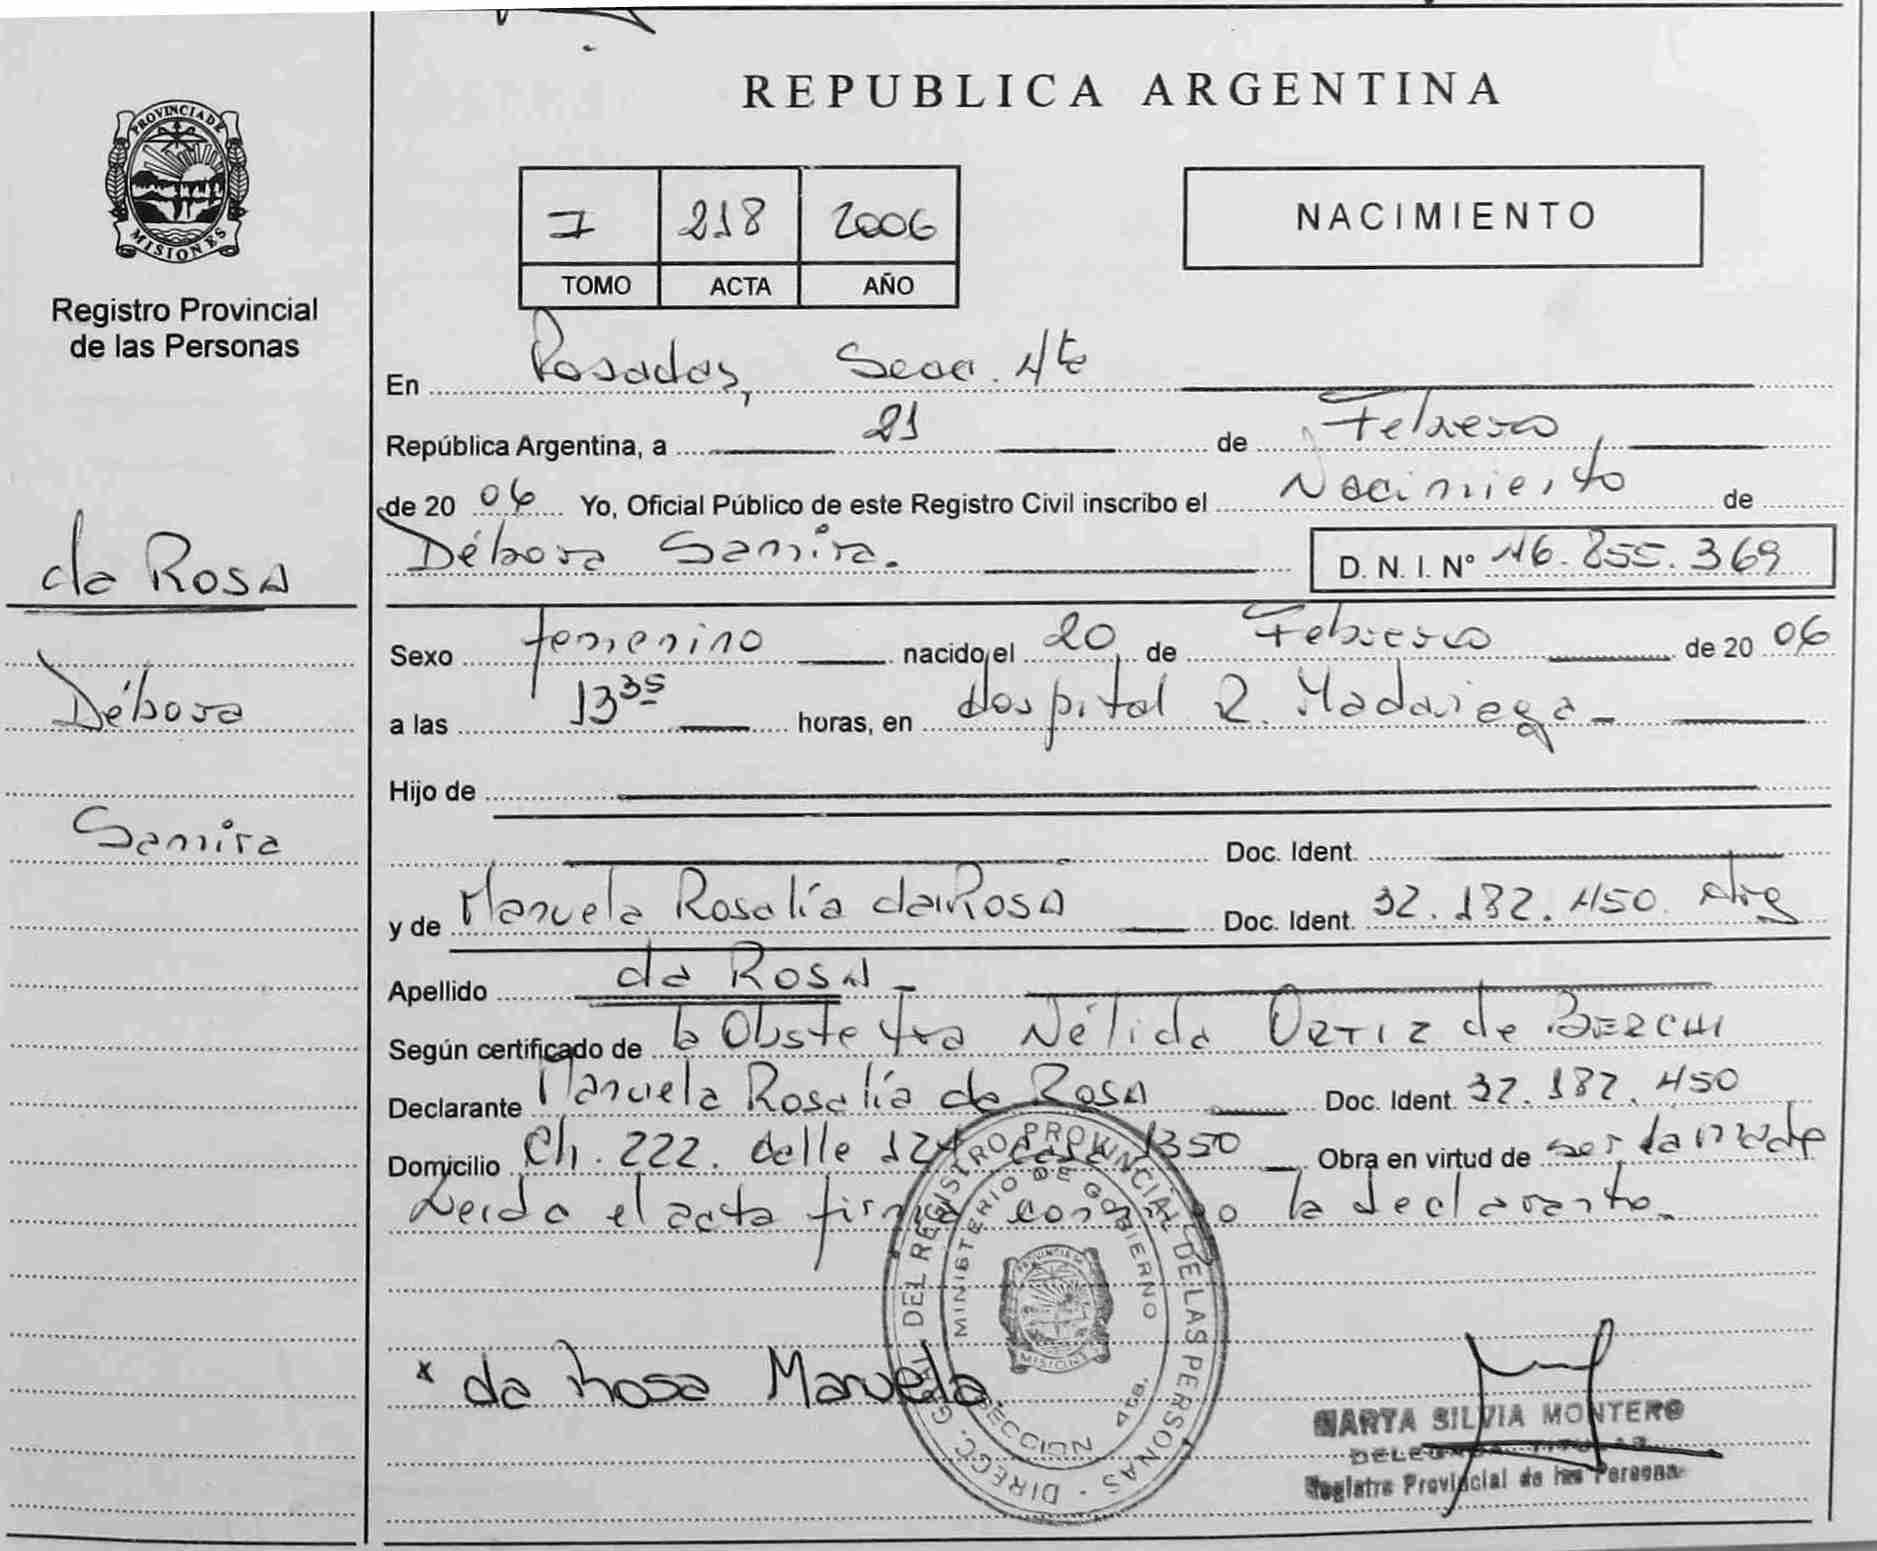 PROVINCIA DE
MISIONES
Registro Provincial
de las Personas
da ROSA
Débora
Samira
REPUBLICA ARGENTINA
I 218 2006
TOMO ACTA AÑO
NACIMIENTO
En Posadas, Secc. 4ta
República Argentina, a 21 de Febrero
de 2006 Yo, Oficial Público de este Registro Civil inscribo el Nacimiento de
Débora Samira. D. N. I. N° 46.855.369
Sexo femenino nacido el 20 de Febrero de 2006
a las 13 35 horas, en Hospital R. Madariaga
Hijo de
Doc. Ident.
y de Manuela Rosalía da ROSA Doc. Ident. 32.182.450 Arg
Apellido da ROSA
Según certificado de la Obstetra Nélida ORTIZ de BERCHI
Declarante Manuela Rosalía da ROSA Doc. Ident. 32.182.450
Domicilio Ch. 222. Calle 124 casa 1350 Obra en virtud de ser la madre
Leida el acta firma conmigo la declarante.
DIRECC. GRAL. DEL REGISTRO PROVINCIAL DE LAS PERSONAS
MINISTERIO DE GOBIERNO
PROVINCIA DE
MISIONES
SECCION 4ta. Pdas.
x da Rosa Manuela
MARTA SILVIA MONTERO
DELEGADA TITULAR
Registro Provincial de las Personas